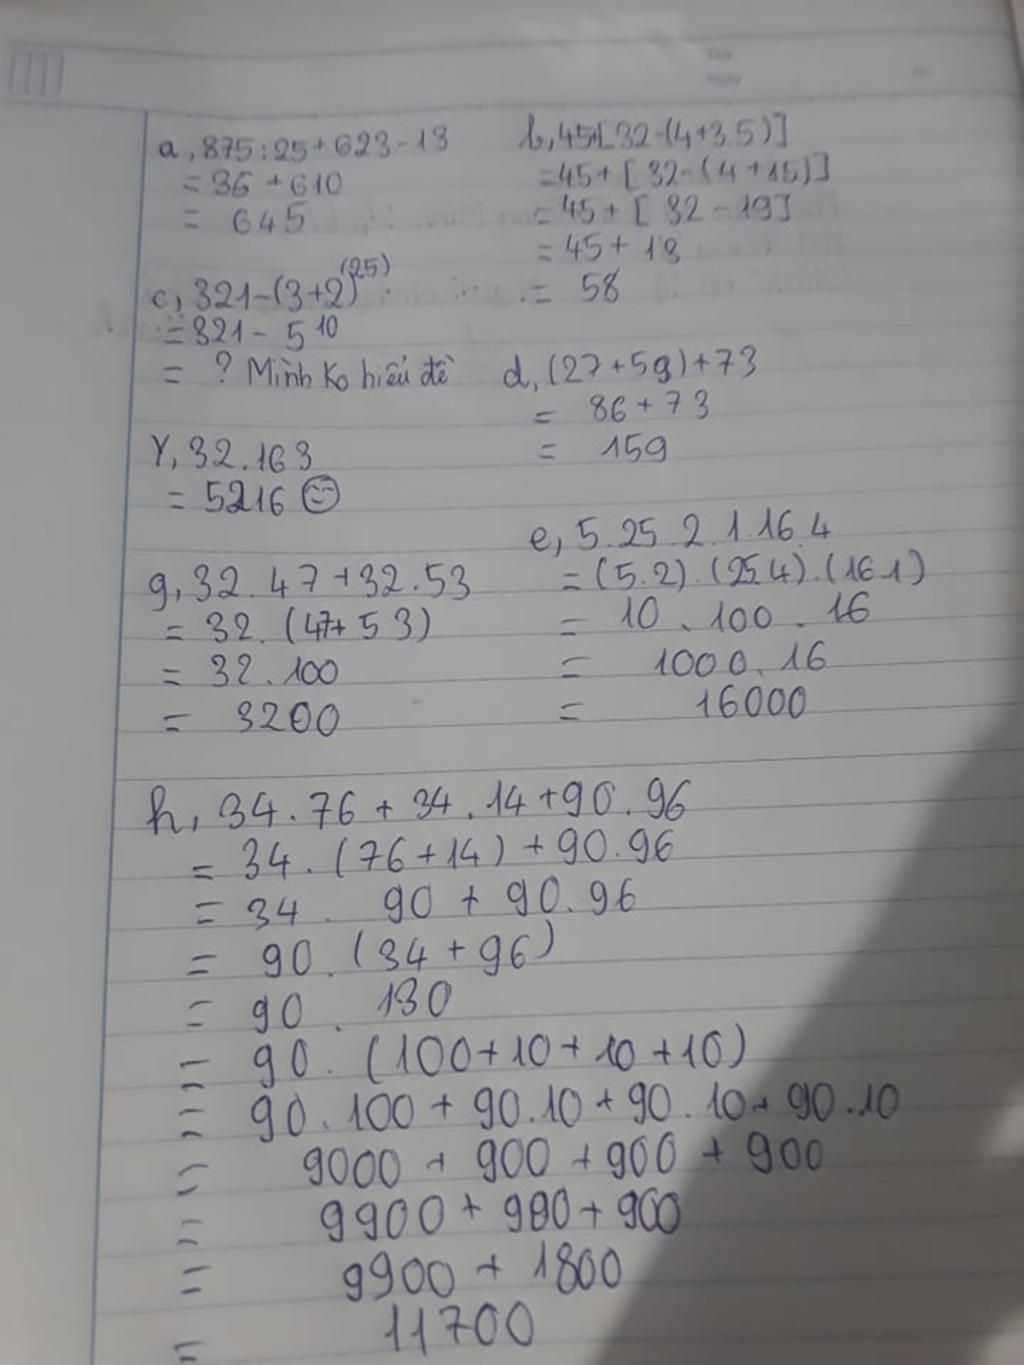 a, 875:25+623-13
= 36 + 610
= 645
b, 45+[32-(4+3.5)]
=45+[32-(4+15)]
= 45+[32-19]
= 45+13
= 58
c, 321-(3+2)^(25)
= 321- 5^10
= ? Mình ko hiểu đề
d, (27+59)+73
= 86+73
= 159
Y, 32.163
= 5216
e, 5.25.2.1.16.4
= (5.2).(25.4).(16.1)
= 10.100.16
= 1000.16
= 16000
g, 32.47+32.53
= 32.(47+53)
= 32.100
= 3200
h, 34.76+34.14+90.96
= 34.(76+14)+90.96
= 34. 90+90.96
= 90.(34+96)
= 90. 130
= 90.(100+10+10+10)
= 90.100+90.10+90.10+90.10
= 9000+900+900+900
= 9900+900+900
= 9900+1800
= 11700